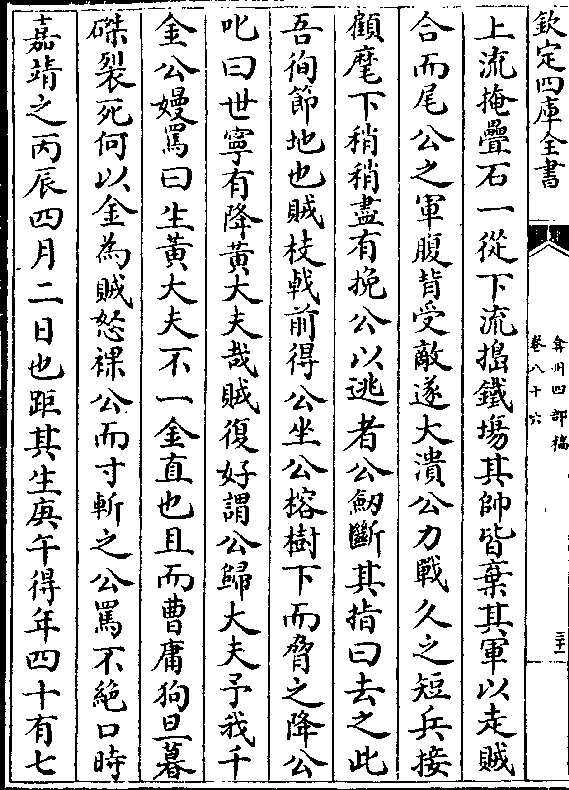 欽定四庫全書
弇州四部稿
卷八十六
三十二
上流掩疊石一從下流搗鐵塲其帥皆棄其軍以走賊
合而尾公之軍腹背受敵遂大潰公力戰久之短兵接
顧麾下稍稍盡有挽公以逃者公劒斷其指曰去之此
吾徇節地也賊枝戟前得公坐公榕樹下而脅之降公
叱曰世寧有降黃大夫哉賊復好謂公歸大夫予我千
金公嫚罵曰生黃大夫不一金直也且而曹庸狗旦暮
磔裂死何以金為賊怒裸公而寸斬之公罵不絕口時
嘉靖之丙辰四月二日也距其生庚午得年四十有七